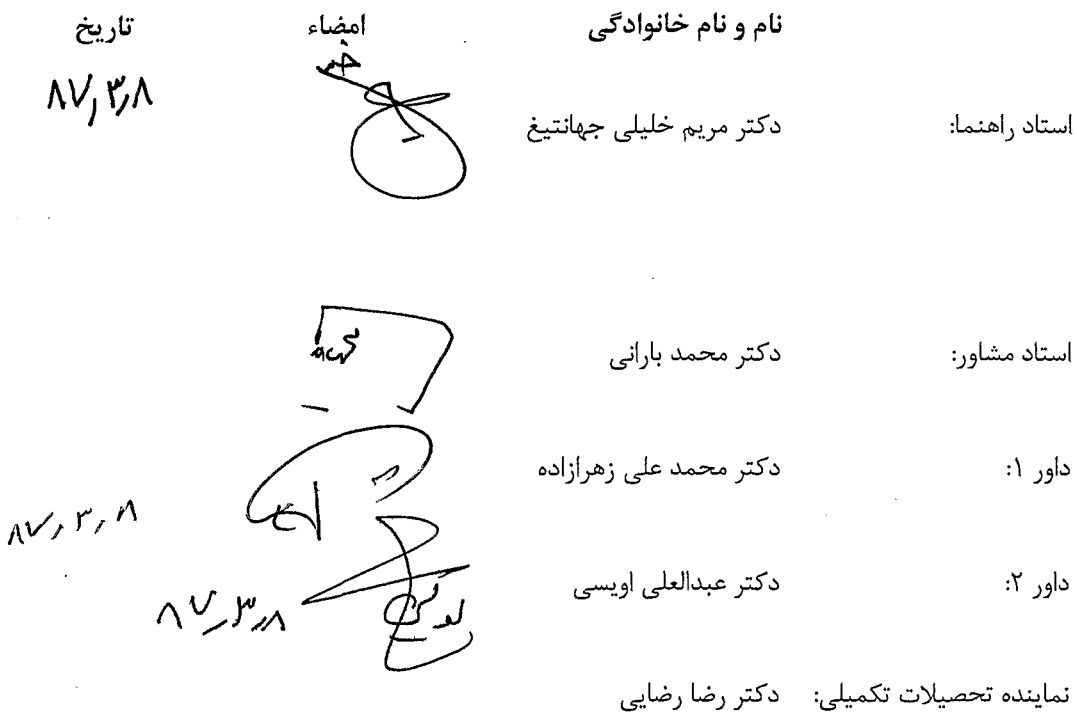 نام و نام خانوادگی امضاء تاریخ
استاد راهنما: دکتر مریم خلیلی جهانتیغ ۸۷٫۳٫۸
استاد مشاور: دکتر محمد بارانی
داور ۱: دکتر محمد علی زهرازاده ۸۷٫۳٫۸
داور ۲: دکتر عبدالعلی اویسی ۸۷٫۳٫۸
نماینده تحصیلات تکمیلی: دکتر رضا رضایی